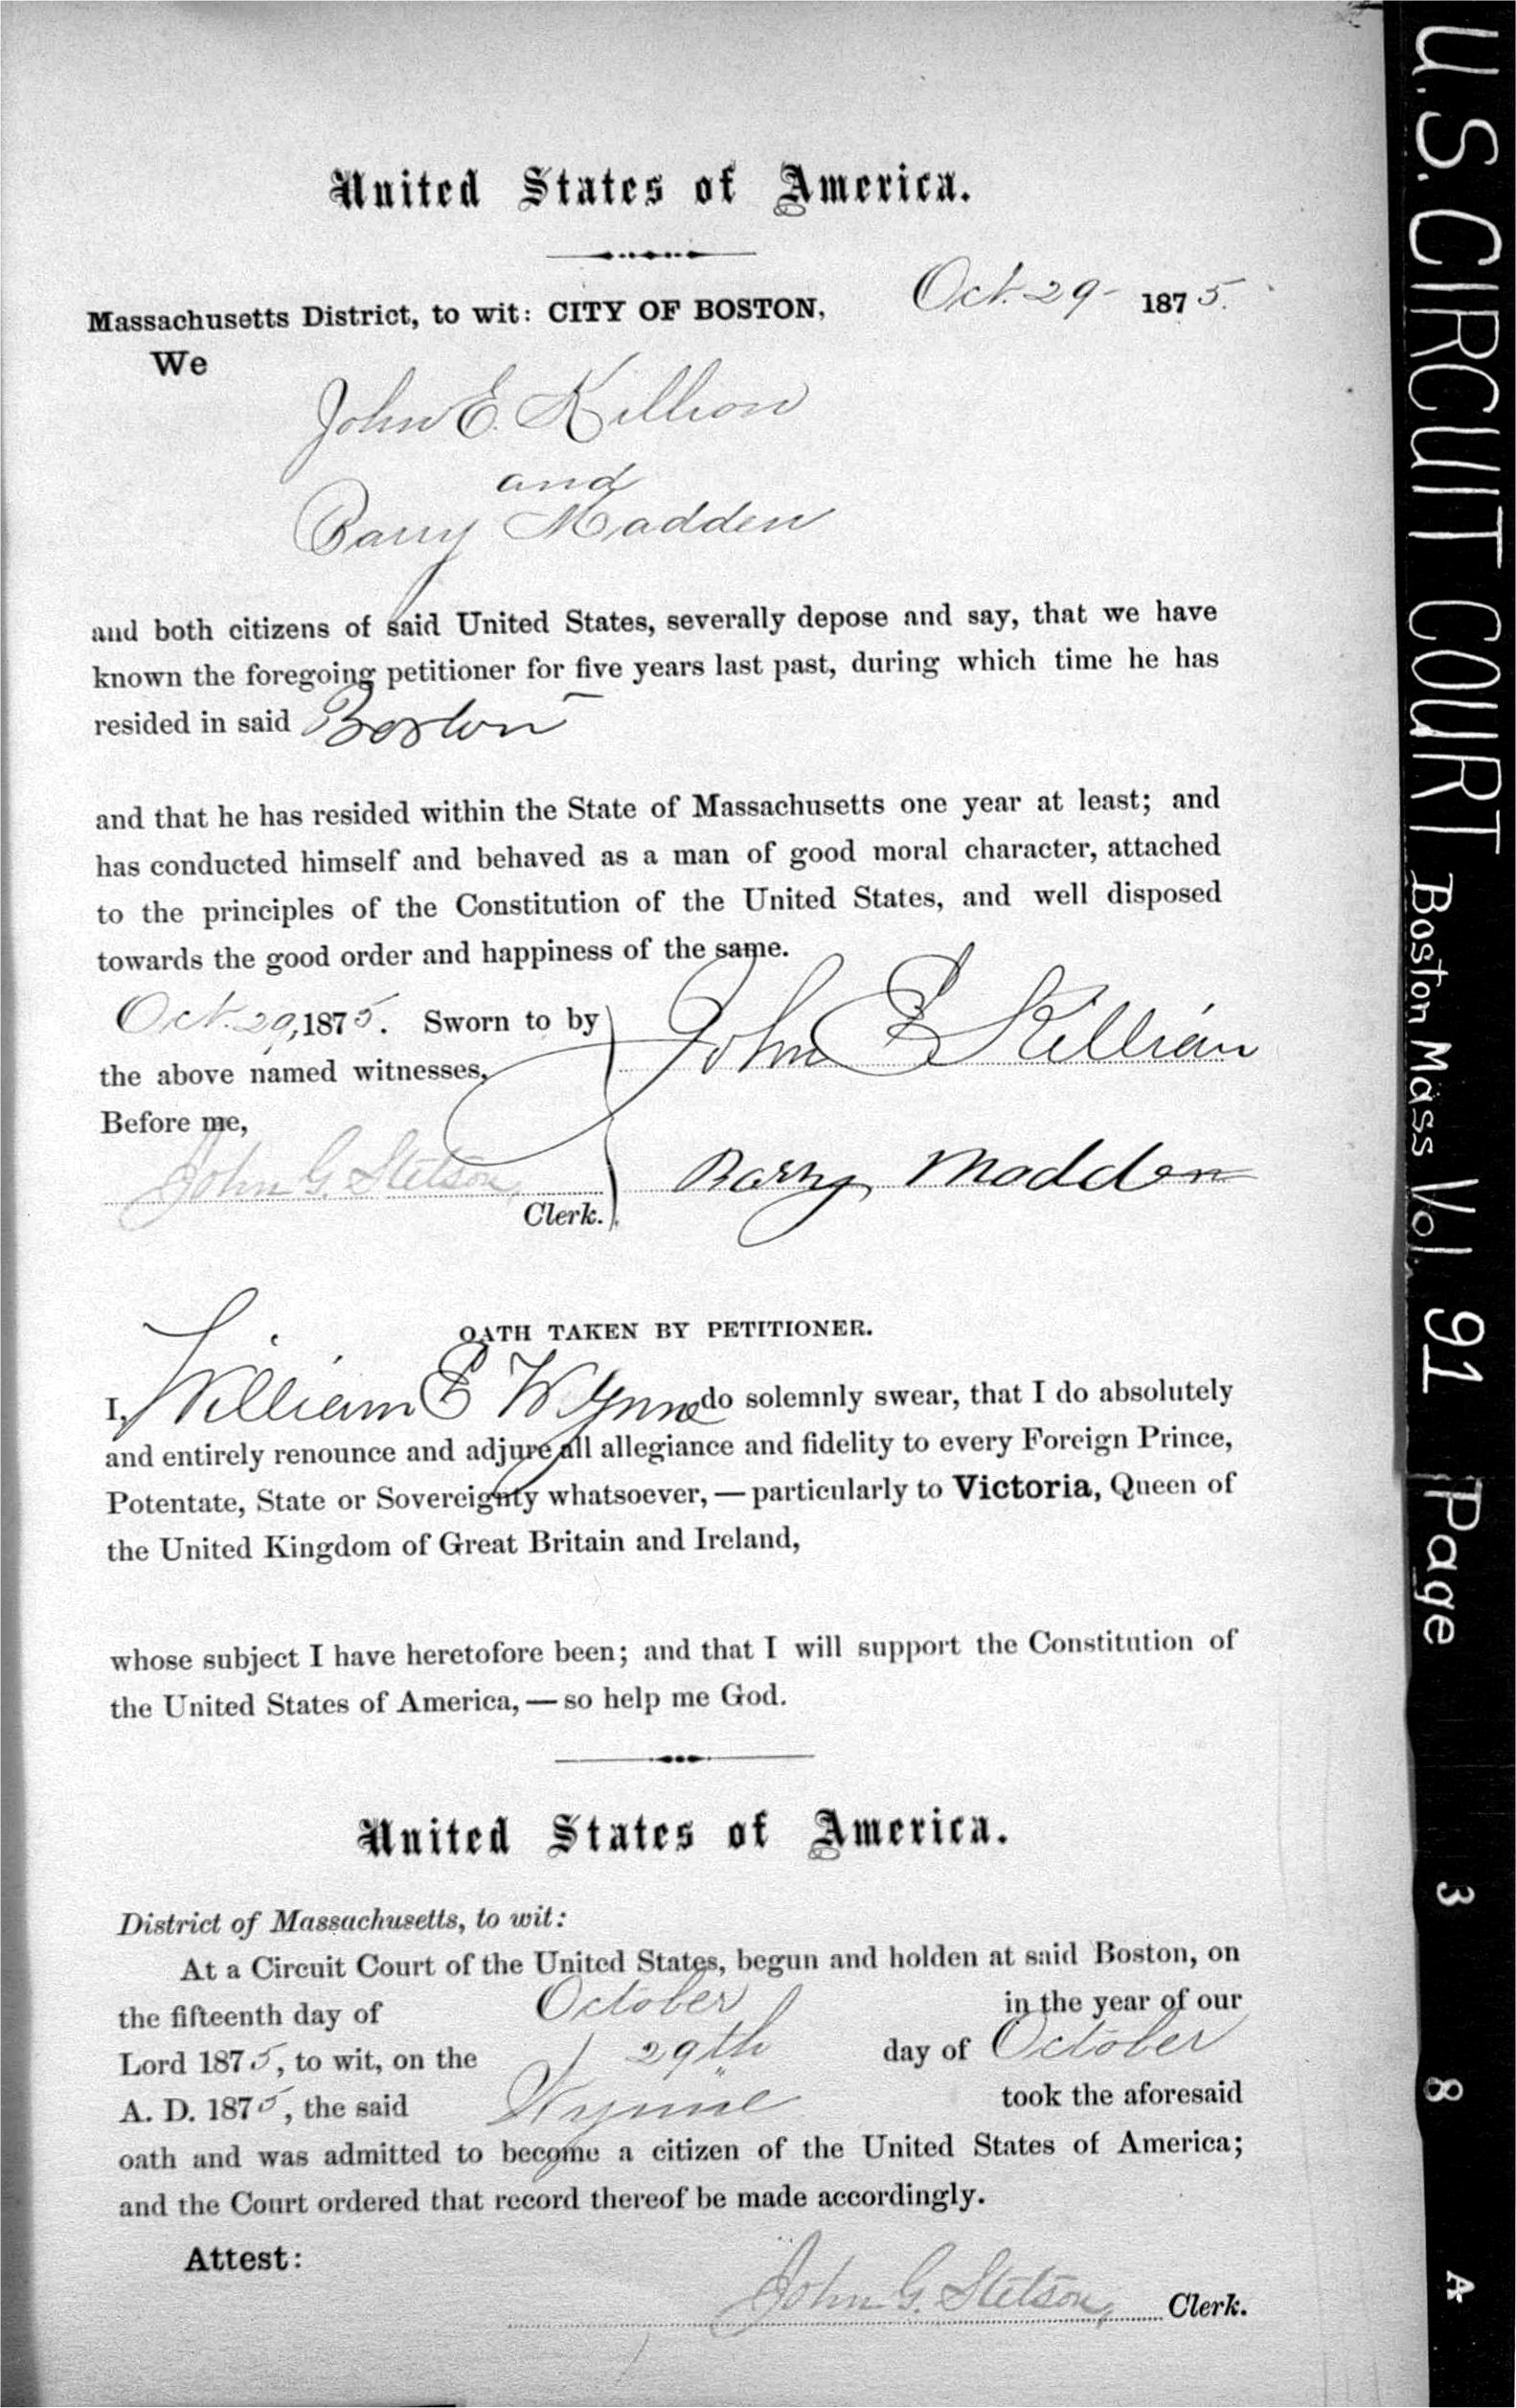 United States of America.
Massachusetts District, to wit: CITY OF BOSTON, Oct. 29 - 1875.
We
John E. Killion
and
Barry Madden
and both citizens of said United States, severally depose and say, that we have
known the foregoing petitioner for five years last past, during which time he has
resided in said Boston
and that he has resided within the State of Massachusetts one year at least; and
has conducted himself and behaved as a man of good moral character, attached
to the principles of the Constitution of the United States, and well disposed
towards the good order and happiness of the same.
Oct. 29, 1875. Sworn to by
the above named witnesses,
Before me,
John G. Stetson,
Clerk.
John E Killian
Barry Madden
OATH TAKEN BY PETITIONER.
I, William E Wynne do solemnly swear, that I do absolutely
and entirely renounce and adjure all allegiance and fidelity to every Foreign Prince,
Potentate, State or Sovereignty whatsoever, — particularly to Victoria, Queen of
the United Kingdom of Great Britain and Ireland,
whose subject I have heretofore been; and that I will support the Constitution of
the United States of America, — so help me God.
United States of America.
District of Massachusetts, to wit:
At a Circuit Court of the United States, begun and holden at said Boston, on
the fifteenth day of October in the year of our
Lord 1875, to wit, on the 29th day of October
A. D. 1875, the said Wynne took the aforesaid
oath and was admitted to become a citizen of the United States of America;
and the Court ordered that record thereof be made accordingly.
Attest:
John G. Stetson, Clerk.
U.S. CIRCUIT COURT Boston Mass Vol. 91 Page 38A